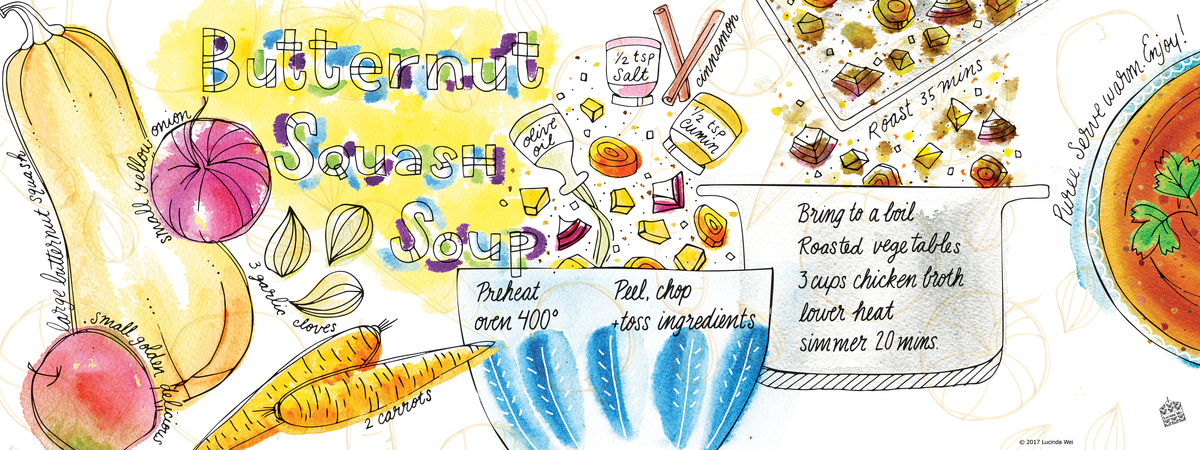 Butternut
Squash
Soup
large butternut squash
small yellow onion
3 garlic cloves
small golden delicious
2 carrots
olive
oil
1/2 tsp
salt
cinnamon
1/2 tsp
cumin
Preheat
oven 400°
Peel, chop
+toss ingredients
Roast 35 mins
Bring to a boil
Roasted vegetables
3 cups chicken broth
lower heat
simmer 20 mins.
Puree. Serve warm. Enjoy!
© 2017 Lucinda Wei